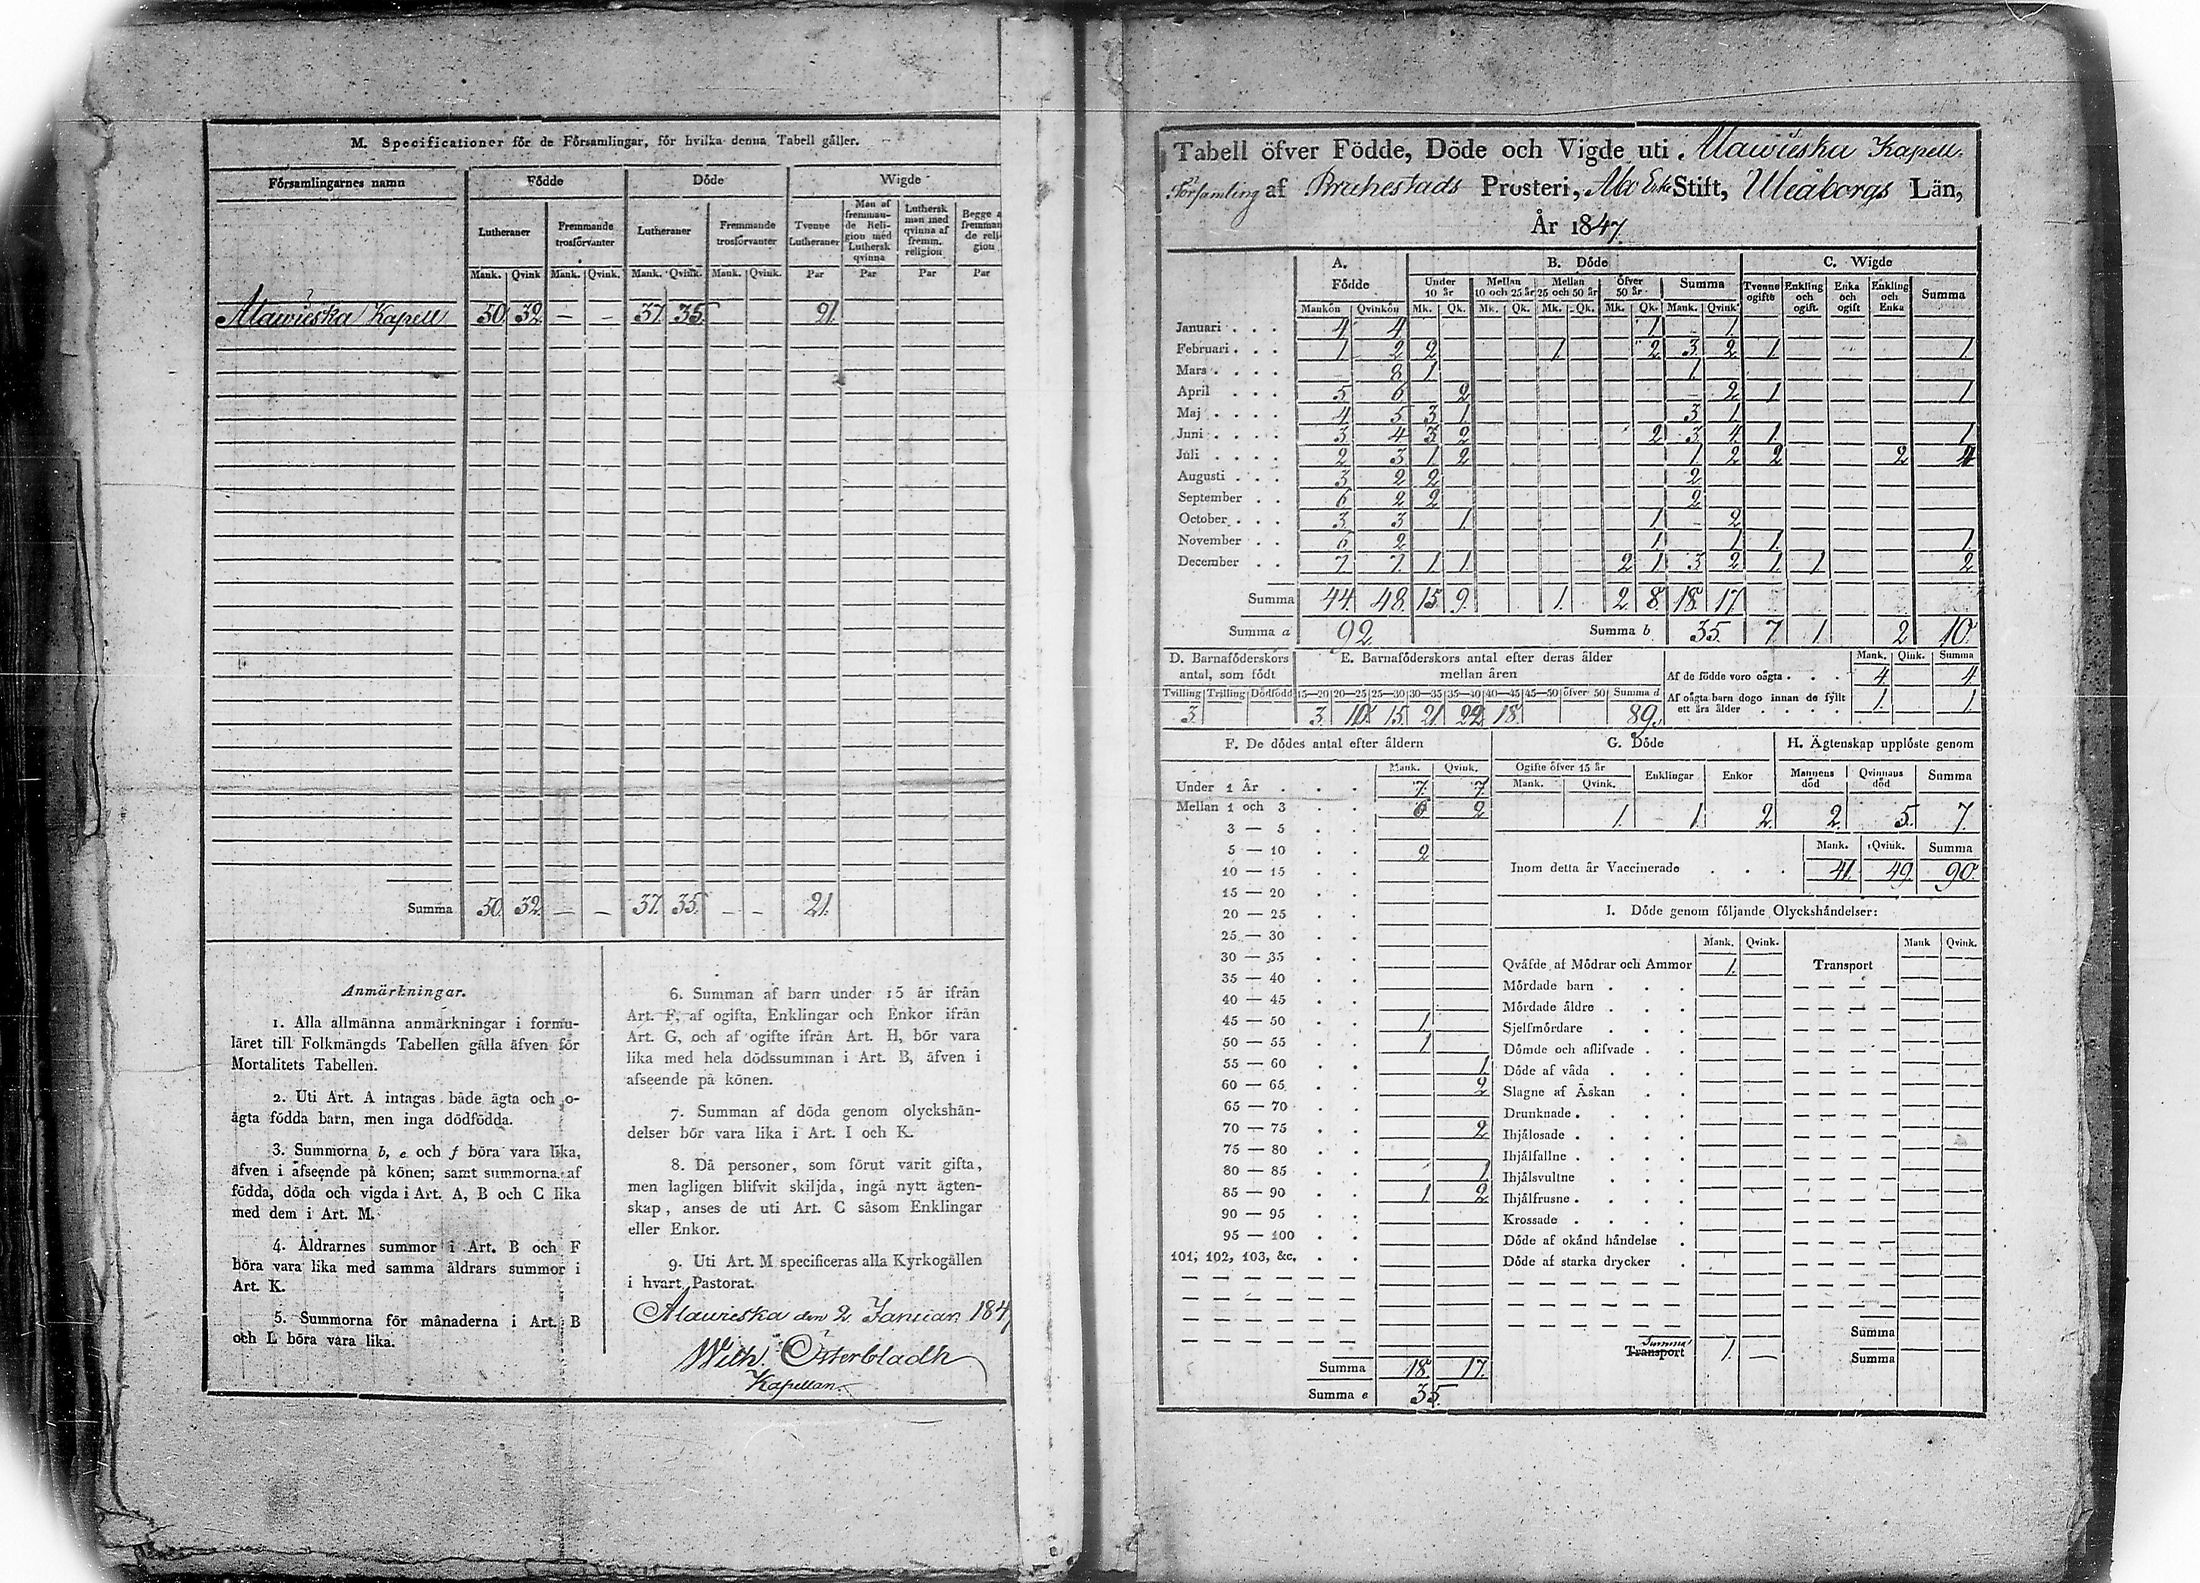 M. Specificationer för de Församlingar, för hvilka denna Tabell gäller.
Församlingarnes namn Födde Döde Wigde
Lutheraner Fremmande trosförvanter Lutheraner Fremmande trosförvanter Tvenne Lutheraner Man af fremmande Religion med Luthersk qvinna Luthersk man med qvinna af fremm. religion Begge a fremman de reli- gion
Mank. Qvink Mank. Qvink. Mank. Qvink. Mank. Qvink. Par Par Par Par
Alawieska Kapell 50 32 — — 37 35 21.
Summa 50. 32 — — 37. 35. - - 21.
Anmärkningar.
1. Alla allmänna anmärkningar i formu-
läret till Folkmängds Tabellen gälla äfven för
Mortalitets Tabellen.
2. Uti Art. A intagas både ägta och o-
ägta födda barn, men inga dödfödda.
3. Summorna b, e och f böra vara lika,
äfven i afseende på könen; samt summorna af
födda, döda och vigda i Art. A, B och C lika
med dem i Art. M.
4. Åldrarnes summor i Art. B och F
böra vara lika med samma åldrars summor i
Art. K.
5. Summorna för månaderna i Art. B
och L böra vara lika.
6. Summan af barn under 15 år ifrån
Art. F, af ogifta, Enklingar och Enkor ifrån
Art. G, och af ogifte ifrån Art. H, bör vara
lika med hela dödssumman i Art. B, äfven i
afseende på könen.
7. Summan af döda genom olyckshän-
delser bör vara lika i Art. I och K.
8. Då personer, som förut varit gifta,
men lagligen blifvit skiljda, ingå nytt ägten-
skap, anses de uti Art. C såsom Enklingar
eller Enkor.
9. Uti Art. M specificeras alla Kyrkogällen
i hvart Pastorat.
Alawieska den 2. Januari 184
Wilh. Österbladh
Kapellan.
Tabell öfver Födde, Döde och Vigde uti Alawieska Kapell
Församling af Brahestads Prosteri, Åbo Erke Stift, Uleåborgs Län,
År 1847.
A. Födde B. Döde C. Wigde
Under 10 år Mellan 10 och 25 år Mellan 25 och 50 år Öfver 50 år Summa Tvenne ogifte Enkling och ogift. Enka och ogift Enkling och Enka Summa
Mankön Qvinkön Mk. Qk. Mk. Qk. Mk. Qk. Mk. Qk. Mank. Qvink
Januari . . . 4 4 1 - 1.
Februari . . . 1 2 2 1. 2 3 2 1. 1.
Mars . . . . - 8 1 1.
April . . . 5 6 2 - 2 1 1
Maj . . . . 4 5 3 1 3 1.
Juni . . . . 3 4 3 2 2 3 4 1. 1
Juli . . . . 2 3 1 2 1 2 2 2 4
Augusti . . . 3 2 2 2
September . . 6 2 2 2
October . . . 3 3 1 1 - 2
November . . 6 2 1 1 1. 1.
December . . 7 7 1 1 2 1 3 2 1 1 2
Summa 44 48 15 9. 1. 2 8 18. 17
Summa a 92 Summa b 35. 7. 1 2 10
D. Barnaföderskors antal, som födt E. Barnaföderskors antal efter deras ålder mellan åren Mank. Qink. Summa
Af de födde voro oägta . . . 4 4.
Tvilling Trilling Dödfödd 15—20 20—25 25—30 30—35 35—40 40—45 45—50 öfver 50 Summa d
Af oägta barn dogo innan de fyllt ett års ålder . . . . 1. 1.
3. 3. 10. 15. 21. 22 18. 89.
F. De dödes antal efter åldern
Mank. Qvink.
Under 1 År . . . 7. 7
Mellan 1 och 3 . . 6 2
3 — 5 . .
5 — 10 . . 2
10 — 15 . .
15 — 20 . .
20 — 25 . .
25 — 30 . .
30 — 35 . .
35 — 40 . .
40 — 45 . .
45 — 50 . . 1.
50 — 55 . . 1
55 — 60 . . 1.
60 — 65 . . 2
65 — 70 . .
70 — 75 . . 2
75 — 80 . .
80 — 85 . . 1
85 — 90 . . 1 2
90 — 95 . .
95 — 100 . .
101, 102, 103, &c. . .
Summa 18. 17.
Summa e 35.
G. Döde H. Ägtenskap upplöste genom
Ogifte öfver 15 år Enklingar Enkor Mannens död Qvinnans död Summa
Mank. Qvink.
1. 1. 2. 2. 5. 7.
Mank. Qvink. Summa
Inom detta år Vaccinerade . . . 41. 49. 90.
I. Döde genom följande Olyckshändelser:
Mank. Qvink. Mank Qvink.
Qväfde af Mödrar och Ammor 1. Transport
Mördade barn . . .
Mördade äldre . . .
Sjelfmördare . . .
Dömde och aflifvade . .
Döde af våda . . .
Slagne af Åskan . .
Drunknade . . . .
Ihjälosade . . . .
Ihjälfallne . . . .
Ihjälsvultne . . .
Ihjälfrusne . . . .
Krossade . . . .
Döde af okänd händelse .
Döde af starka drycker .
Summa
Summa
Transport 1. — Summa